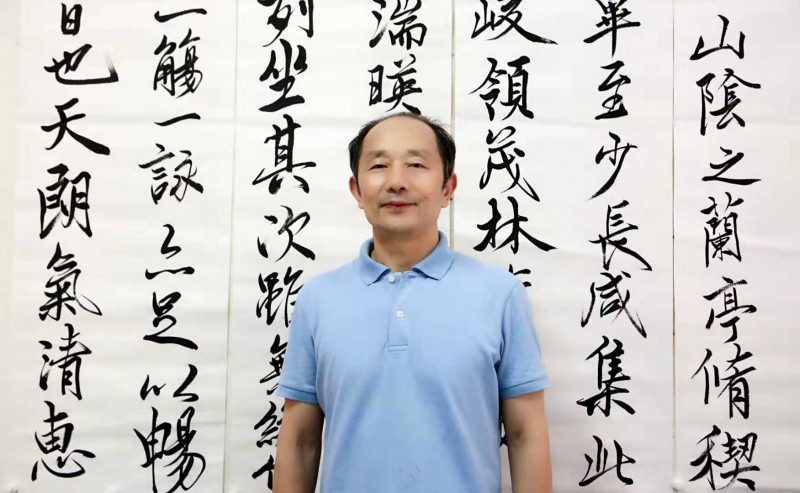 山陰之蘭亭脩禊
畢至少長咸集此
峻領茂林
湍暎
列坐其次雖無
一觴一詠亦足以暢
日也天朗氣清惠